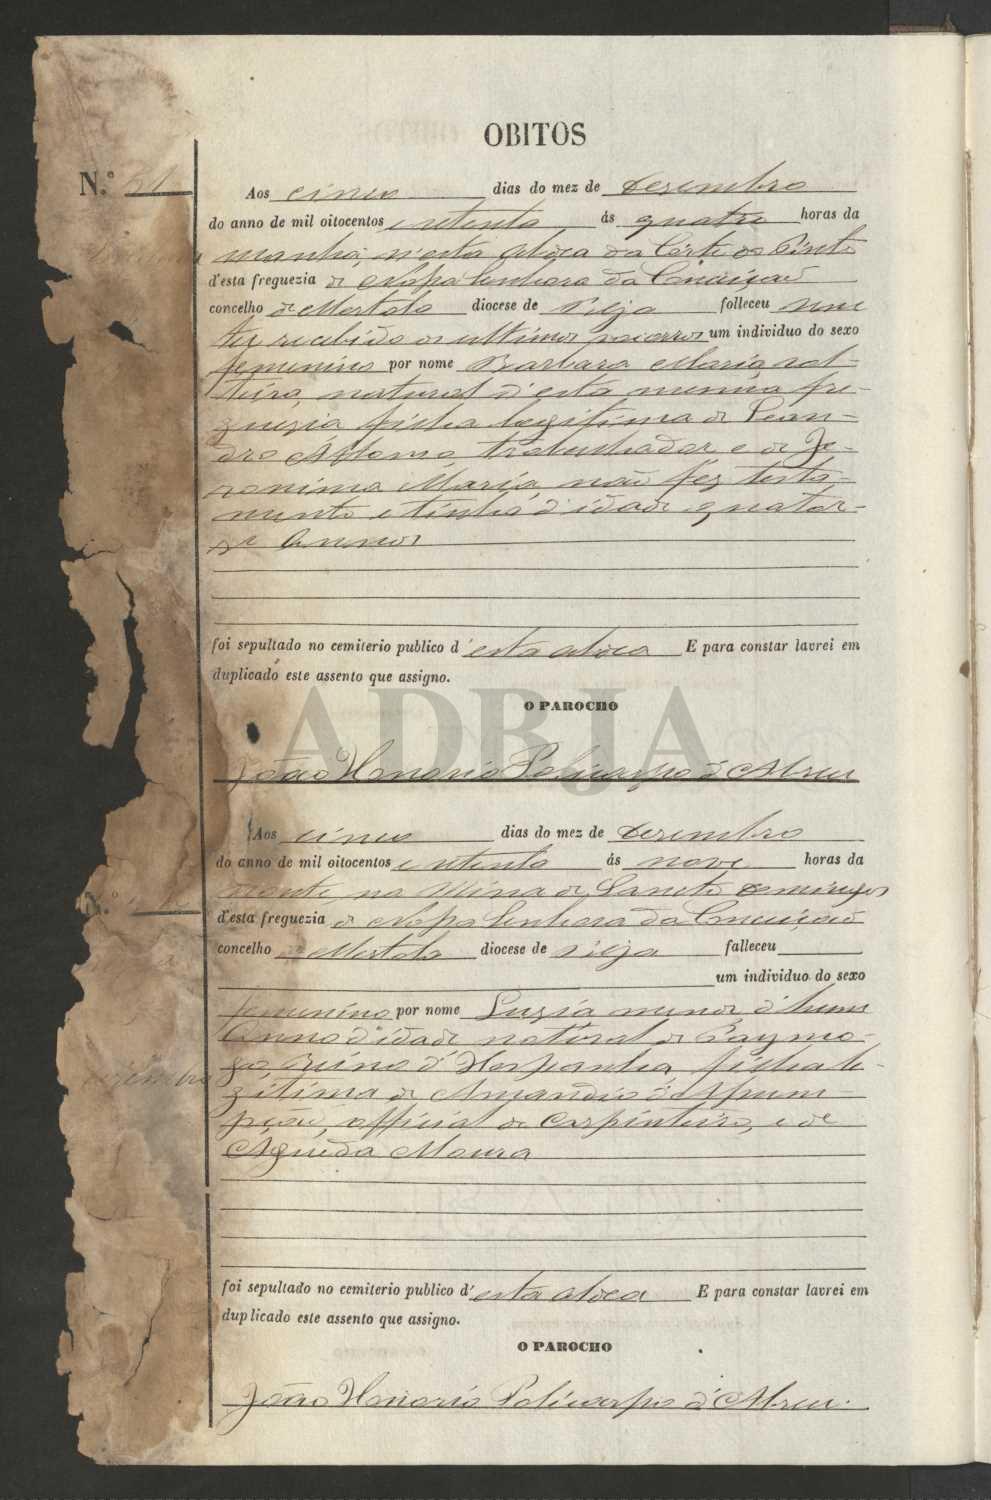 OBITOS
N.º 51
Aos cinco dias do mez de Desembro
do anno de mil oitocentos e setenta ás quatro horas da
manhã, n'esta aldea da Côrte do Pinto
d'esta freguezia de Nossa Senhora da Conceição
concelho de Mertola diocese de Beja falleceu
recebido os ultimos soccorros um individuo do sexo
femenino por nome Barbara Maria sol-
teira, natural d'esta mesma fre-
guezia filha legitima de Lean-
dro Affonso trabalhador, e de Je-
ronima Maria, não fez testa-
mento e tinha d'idade quator-
se Annos
foi sepultado no cemiterio publico d'esta aldea E para constar lavrei em
duplicado este assento que assigno.
O PAROCHO
ADBJA
João Honorio Policarpo d'Abreu
Aos cinco dias do mez de Desembro
do anno de mil oitocentos e setenta ás nove horas da
noute, na Mina de Sancto Domingos
N.º
d'esta freguezia de Nossa Senhora da Conceição
concelho de Mertola diocese de Beja falleceu
um individuo do sexo
femenino por nome Luzia menor d'hum
Anno d'idade natural de Paymo-
go, Reino d'Hespanha, filha le-
gitima de Amandio d'Assum-
pção, official de carpinteiro, e de
Agueda Moura
foi sepultado no cemiterio publico d'esta aldea E para constar lavrei em
duplicado este assento que assigno.
O PAROCHO
João Honorio Policarpo d'Abreu